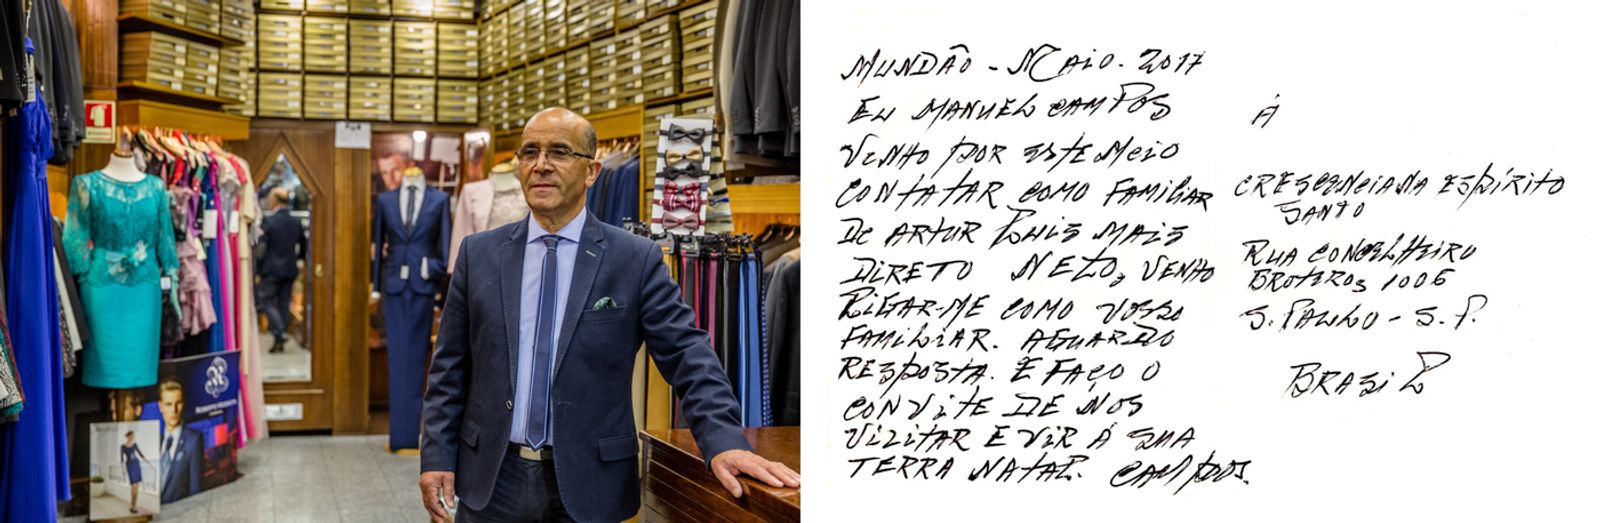 MUNDÃO - MAIO. 2017
EU MANUEL CAMPOS
VENHO POR ESTE MEIO
CONTATAR COMO FAMILIAR
DE ARTUR LUIS MAIS
DIRETO NETO, VENHO
LIGAR-ME COMO VOSSO
FAMILIAR. AGUARDO
RESPOSTA. E FAÇO O
CONVITE DE NOS
VIZITAR E VIR Á SUA
TERRA NATAL. CAMPOS.
Á
CRESCENCIANA ESPÍRITO
SANTO
RUA CONCELHEIRO
BROTEROS 1006
S. PAULO - S. P.
BRASIL